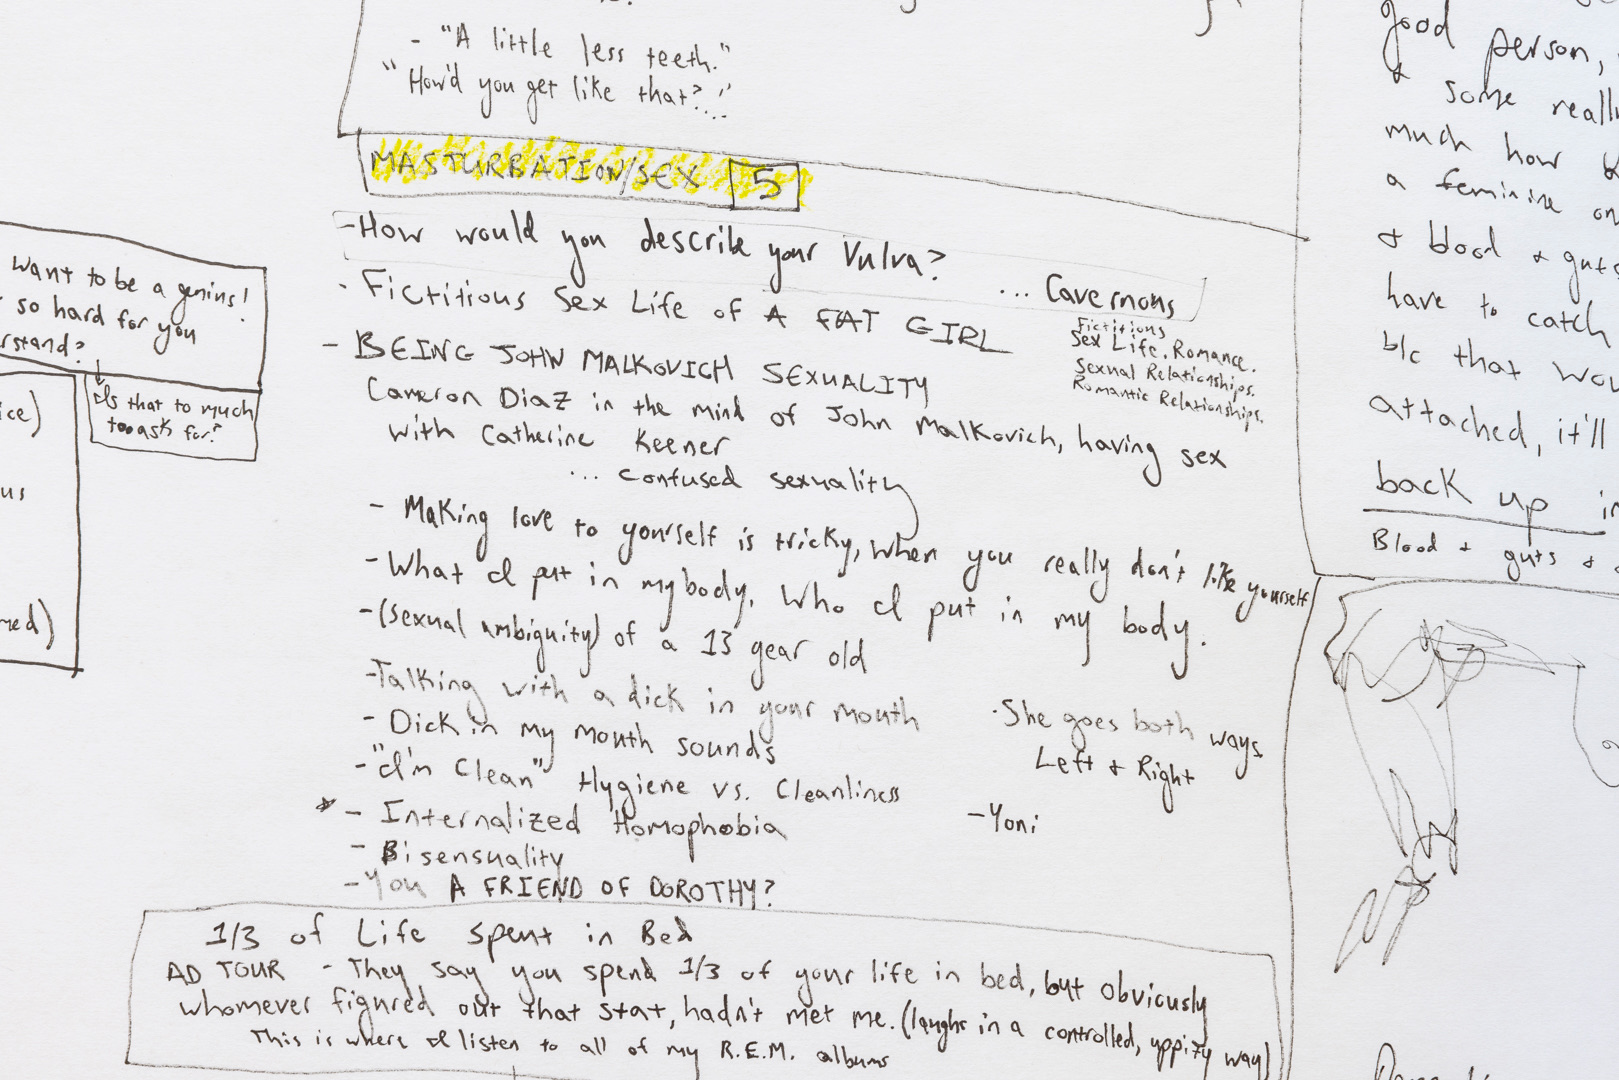 - "A little less teeth."
"How'd you get like that?..."
MASTURBATION/SEX 5
-How would you describe your Vulva?
... Cavernous
- Fictitious Sex Life of A FAT GIRL
Fictitious
Sex Life. Romance.
Sexual Relationships.
Romantic Relationships.
- BEING JOHN MALKOVICH SEXUALITY
Cameron Diaz in the mind of John Malkovich, having sex
with Catherine Keener
... confused sexuality
- Making love to yourself is tricky, when you really don't like yourself
- What I put in my body. Who I put in my body.
- (sexual ambiguity) of a 13 year old
- Talking with a dick in your mouth
- Dick in my mouth sounds
- "I'm Clean" Hygiene vs. Cleanliness
* - Internalized Homophobia
- Bisensuality
- You A FRIEND OF DOROTHY?
· She goes both ways
Left + Right
- Yoni
1/3 of Life spent in Bed
AD TOUR - They say you spend 1/3 of your life in bed, but obviously
whomever figured out that stat, hadn't met me. (laughs in a controlled, uppity way)
This is where I listen to all of my R.E.M. albums
want to be a genius!
so hard for you
rstand?
Is that to much
too ask for?
ice)
us
med)
good person,
+ some really
much how
a feminine
+ blood + guts
have to catch
b/c that wou
attached, it'll
back up in
Blood + guts +